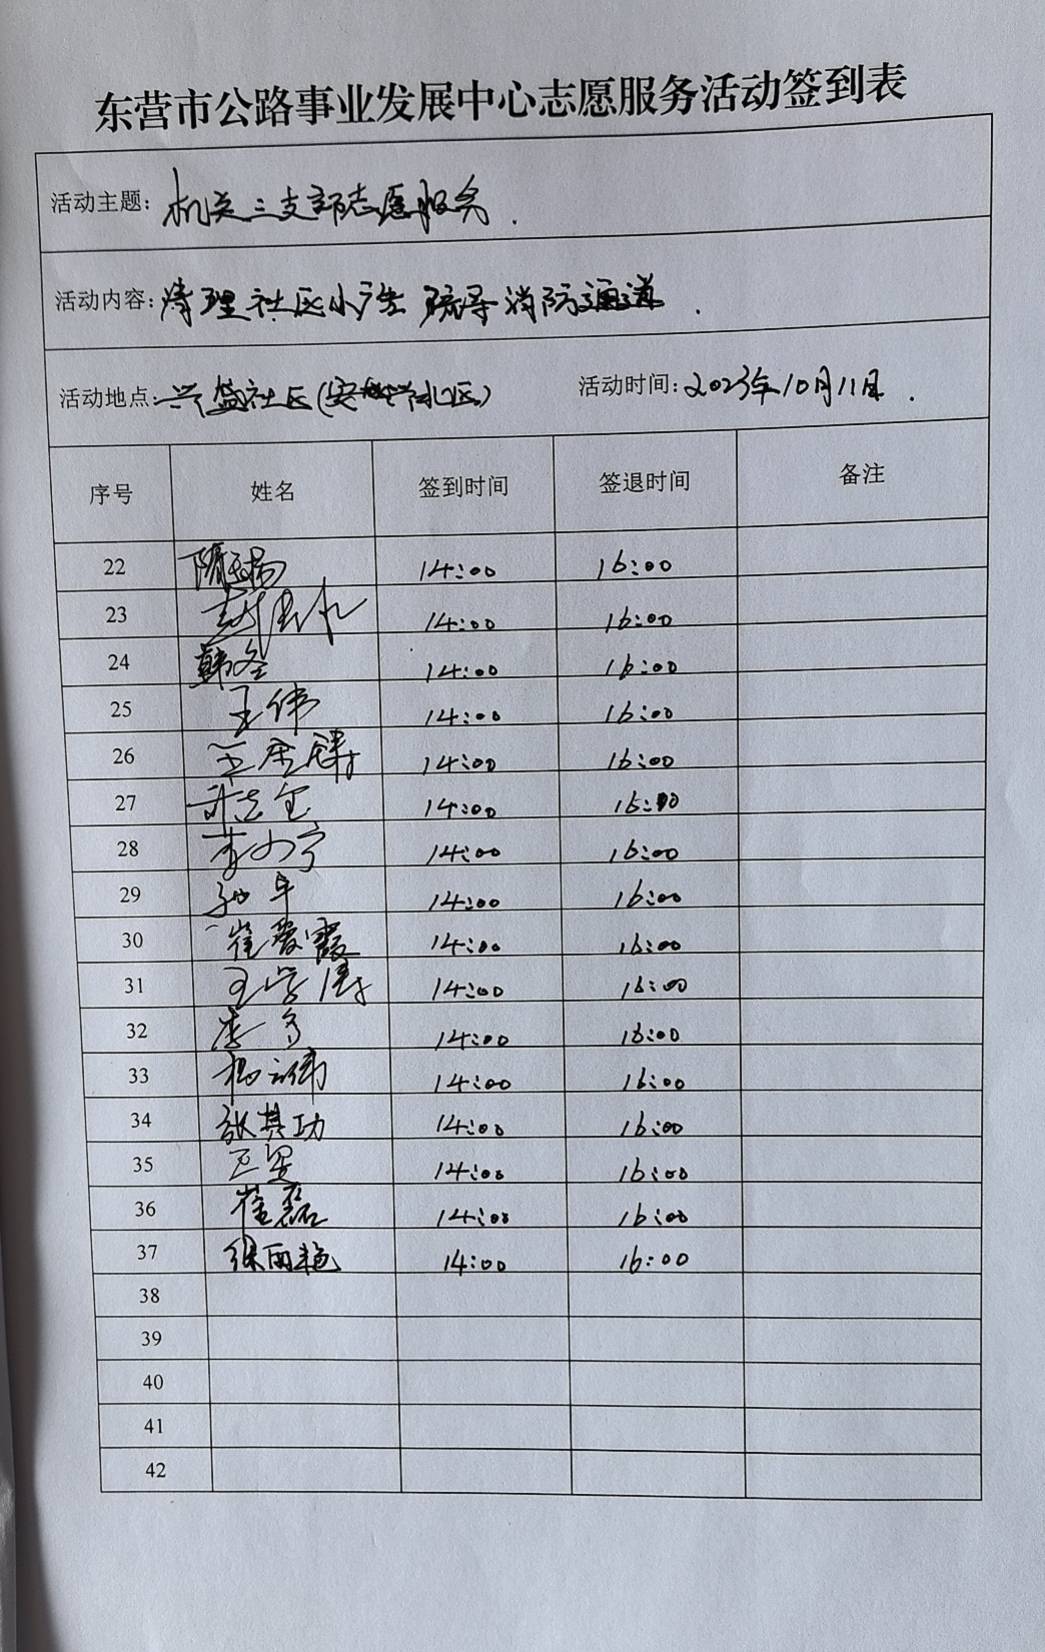 东营市公路事业发展中心志愿服务活动签到表
活动主题: 机关三支部志愿服务.
活动内容: 清理社区小广告 疏导消防通道.
活动地点: 兴盛社区(安兴北区) 活动时间: 2023年10月11日.
序号 姓名 签到时间 签退时间 备注
22 隋玉扬 14:00 16:00
23 14:00 16:00
24 韩冬 14:00 16:00
25 王伟 14:00 16:00
26 14:00 16:00
27 14:00 16:00
28 14:00 16:00
29 孙卓 14:00 16:00
30 崔爱霞 14:00 16:00
31 王学涛 14:00 16:00
32 14:00 16:00
33 杨立伟 14:00 16:00
34 张其功 14:00 16:00
35 14:00 16:00
36 崔磊 14:00 16:00
37 徐丽艳 14:00 16:00
38
39
40
41
42